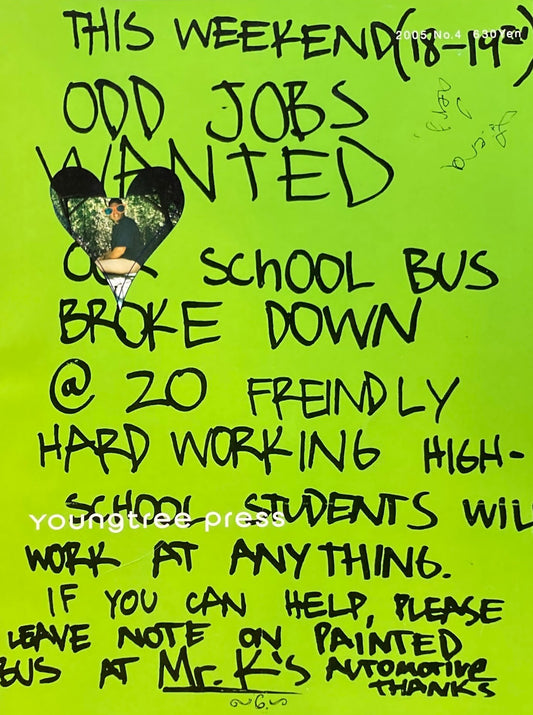 2005, No.4 630Yen
THIS WEEKEND (18-19TH)
ODD JOBS
WANTED
OUR SCHOOL BUS
BROKE DOWN
@ 20 FREINDLY
HARD WORKING HIGH-
SCHOOL STUDENTS WIL
youngtree press
WORK AT ANYTHING.
IF YOU CAN HELP, PLEASE
LEAVE NOTE ON PAINTED
BUS AT Mr. K's AUTOMOTIVE
THANKS
6.